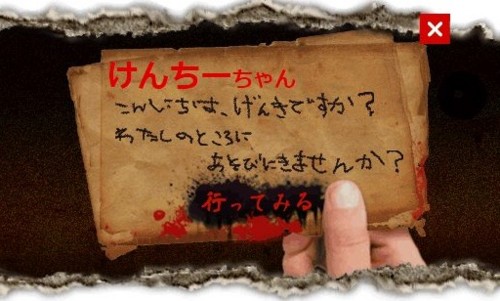 けんちーちゃん
こんにちは、げんきですか？
わたしのところに
あそびにきませんか？
行ってみる